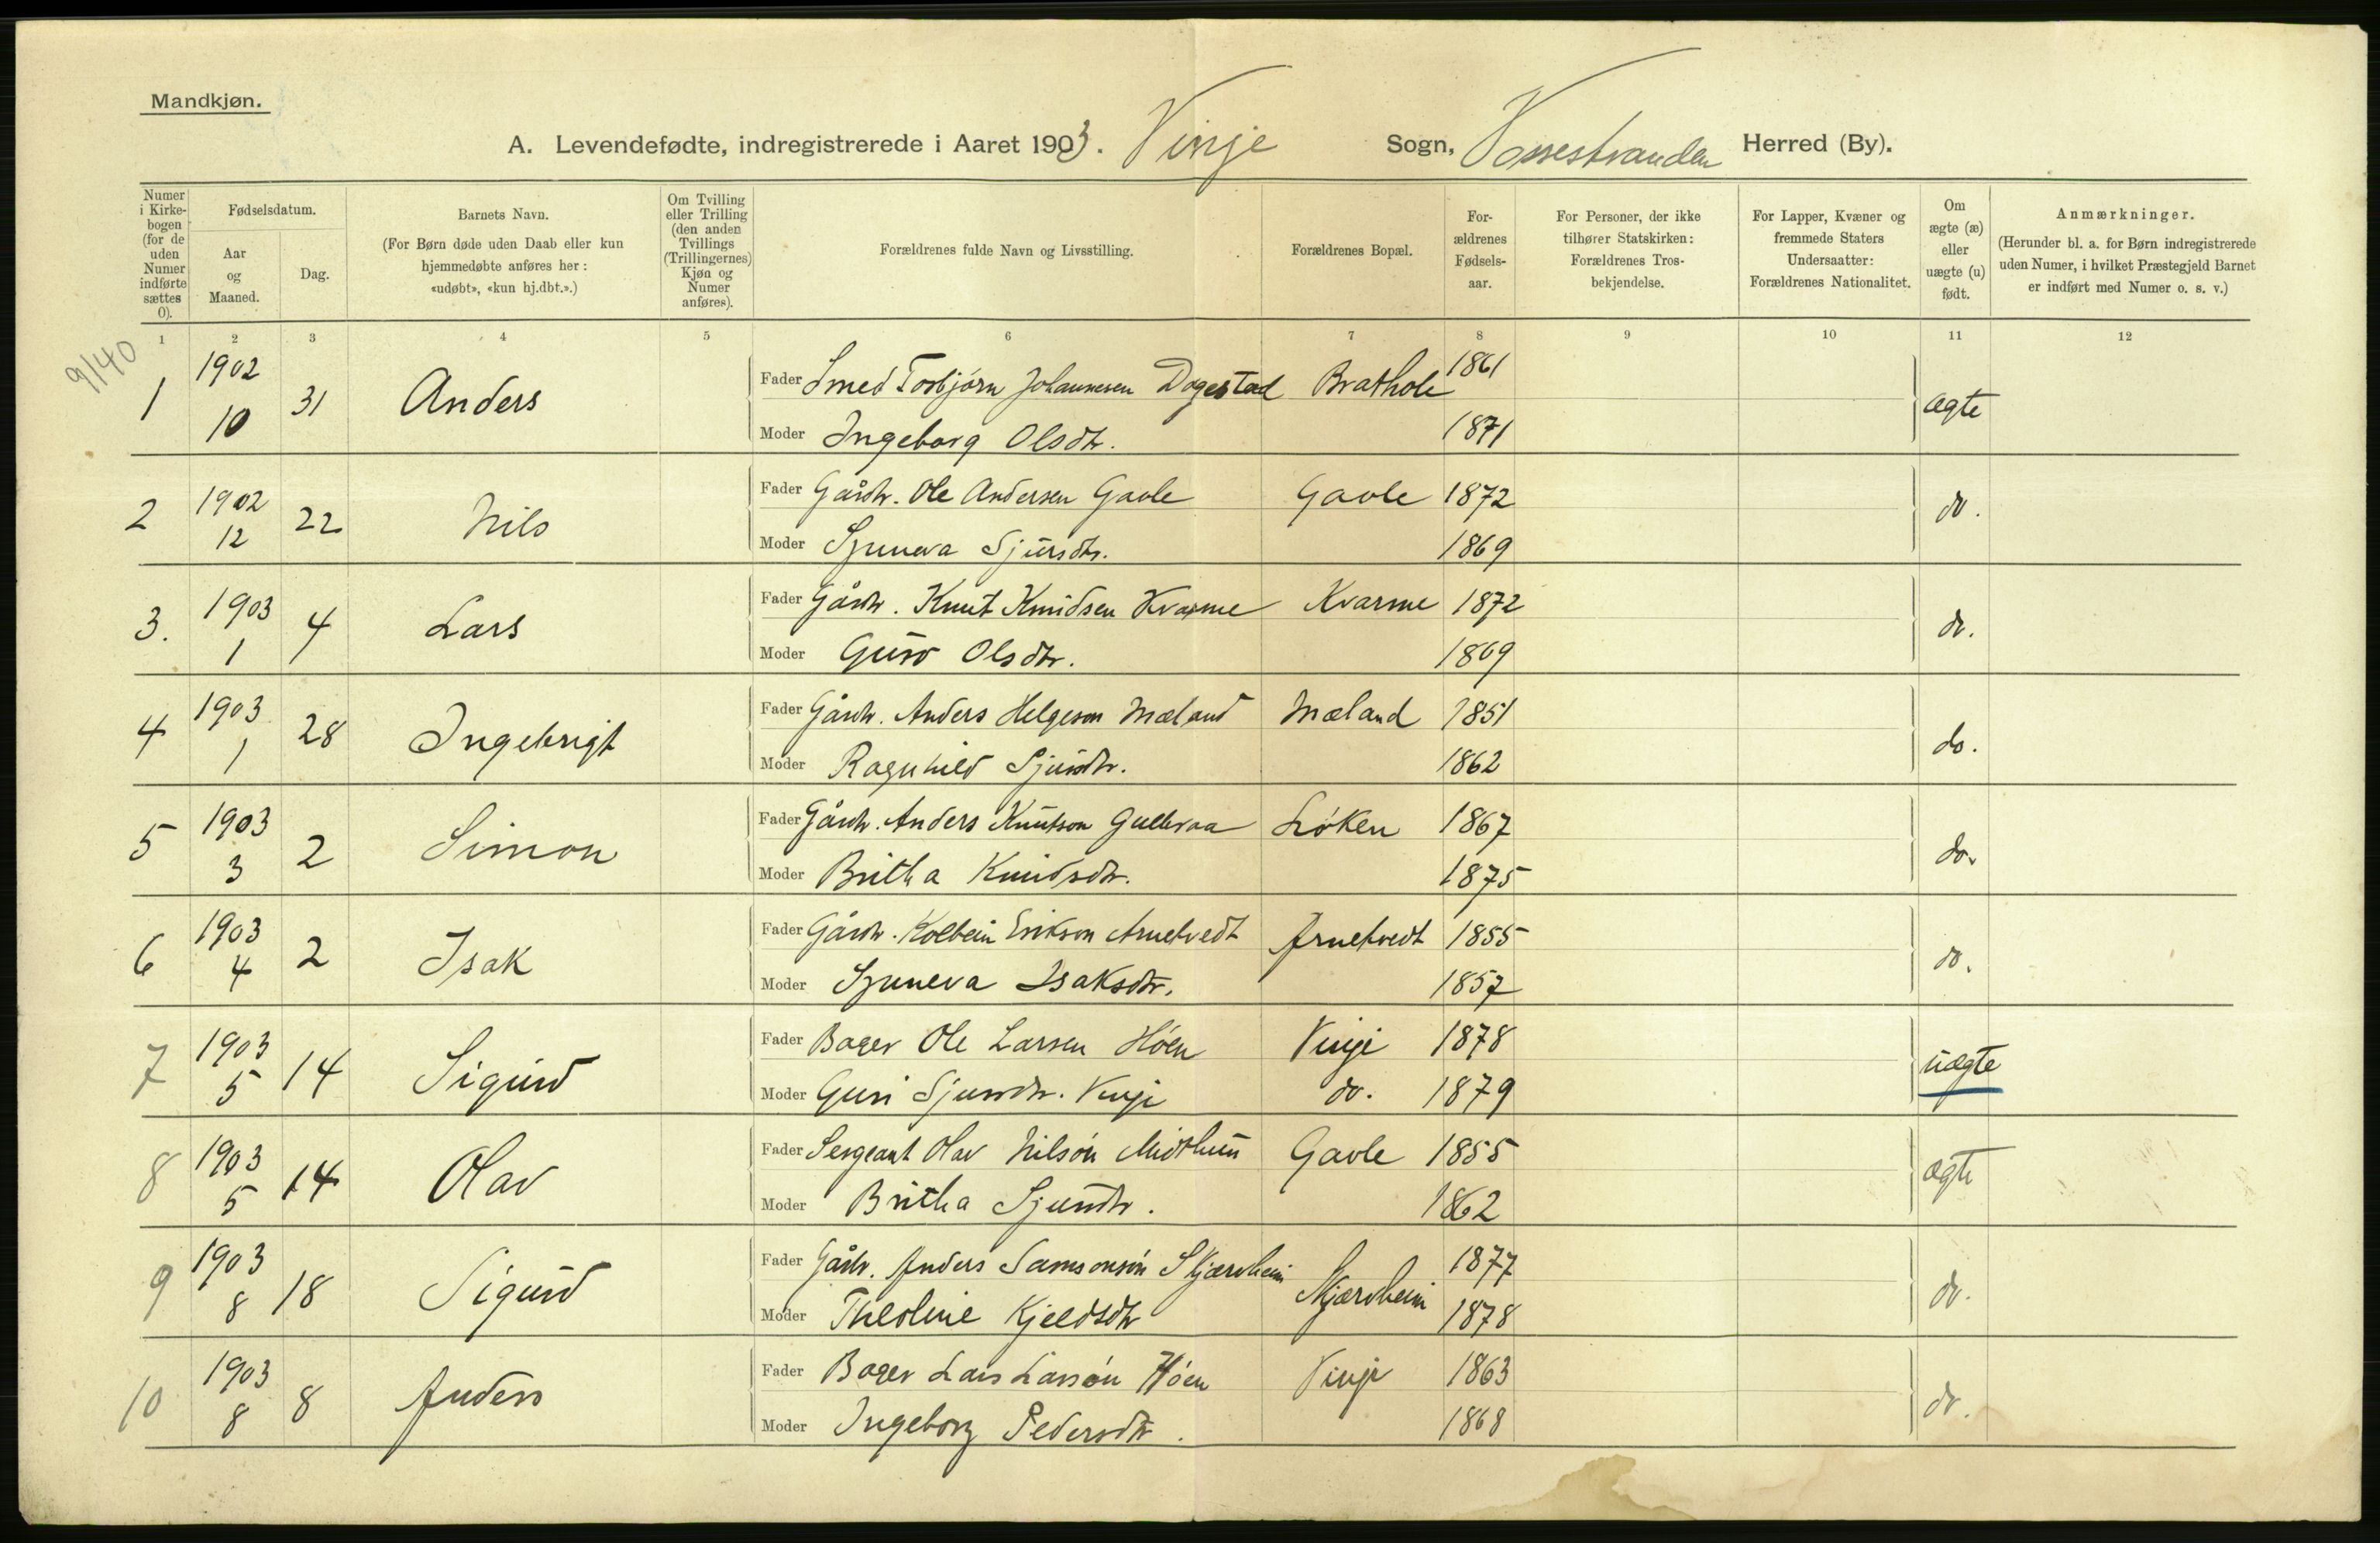 Mandkjøn.
A. Levendefødte, indregistrerede i Aaret 1903. Vinje Sogn, Vossestranden Herred (By).
Numer i Kirkebogen (for de uden Numer indførte sættes 0).
Fødselsdatum.
Aar og Maaned.
Dag.
Barnets Navn.
(For Børn døde uden Daab eller kun hjemmedøbte anføres her: «udøbt», «kun hj.dbt.».)
Om Tvilling eller Trilling (den anden Tvillings (Trillingernes) Kjøn og Numer anføres).
Forældrenes fulde Navn og Livsstilling.
Forældrenes Bopæl.
Forældrenes Fødselsaar.
For Personer, der ikke tilhører Statskirken: Forældrenes Trosbekjendelse.
For Lapper, Kvæner og fremmede Staters Undersaatter: Forældrenes Nationalitet.
Om ægte (æ) eller uægte (u) født.
Anmærkninger.
(Herunder bl. a. for Børn indregistrerede uden Numer, i hvilket Præstegjeld Barnet er indført med Numer o. s. v.)
1 2 3 4 5 6 7 8 9 10 11 12
9/140
1 1902 10 31 Anders Fader Smed Torbjørn Johannesen Dagestad Brathole 1861 ægte
Moder Ingeborg Olsdtr. 1871
2 1902 12 22 Nils Fader Gårdbr. Ole Andersen Gavle Gavle 1872 do.
Moder Synneva Sjursdtr. 1869
3. 1903 1 4 Lars Fader Gårdbr. Knut Knudsen Kvarme Kvarme 1872 do.
Moder Guro Olsdtr. 1869
4 1903 1 28 Ingebrigt Fader Gårdbr. Anders Helgeson Mæland Mæland 1851 do.
Moder Ragnhild Sjursdtr. 1862
5 1903 3 2 Simon Fader Gårdbr. Anders Knutson Gullbraa Løken 1867 do.
Moder Britha Knudsdtr. 1875
6 1903 4 2 Isak Fader Gårdbr. Kolbein Erikson Arnetvedt Arnetvedt 1855 do.
Moder Synneva Isaksdtr. 1857
7 1903 5 14 Sigurd Fader Bager Ole Larsen Høen Vinje 1878 uægte
Moder Guri Sjursdtr. Vinje do. 1879
8 1903 5 14 Olav Fader Sergeant Olav Nilsøn Midthun Gavle 1855 ægte
Moder Britha Sjursdtr. 1862
9 1903 8 18 Sigurd Fader Gårdbr. Anders Samsonsøn Skjærvheim Skjærvheim 1877 do.
Moder Theoline Kjeldsdtr 1878
10 1903 8 8 Anders Fader Bager Lars Larsøn Høen Vinje 1863 do.
Moder Ingeborg Pedersdtr. 1868